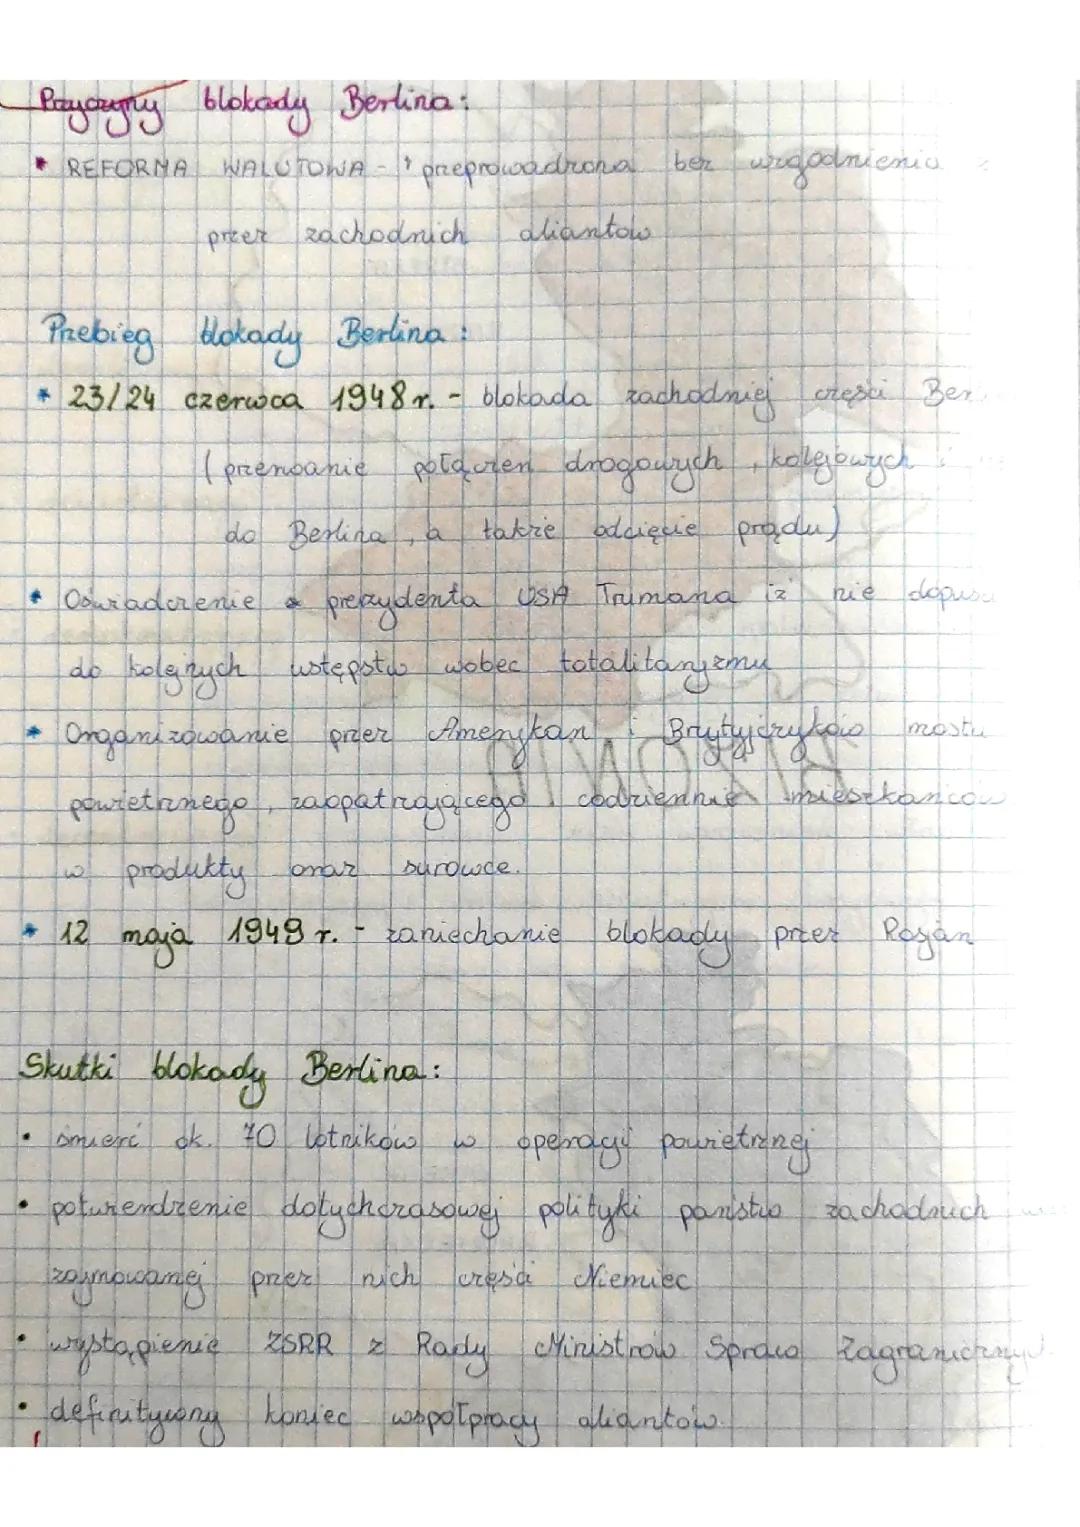 Przyczyny blokady Berlina:
* REFORMA WALUTOWA - preprowadzona bez uzgodnienia z
przez zachodnich aliantów
Przebieg blokady Berlina:
* 23/24 czerwca 1948 r. - blokada zachodniej części Ber
(przerwanie połączeń drogowych, kolejowych i
do Berlina, a także odcięcie prądu)
* Oświadczenie prezydenta USA Trumana iż nie dopuś
do kolejnych ustępstw wobec totalitaryzmu
* Organizowanie przez Amerykan i Brytyjczyków mostu
powietrznego, zaopatrującego codziennie mieszkańców
w produkty oraz surowce.
* 12 maja 1949 r. - zaniechanie blokady przez Rosjan
Skutki blokady Berlina:
• śmierć ok. 70 lotników w operacji powietrznej
• potwierdzenie dotychczasowej polityki państw zachodnich
zajmowanej przez nich części Niemiec
• wystąpienie ZSRR z Rady Ministrów Spraw Zagranicznych
• definitywny koniec współpracy aliantów.